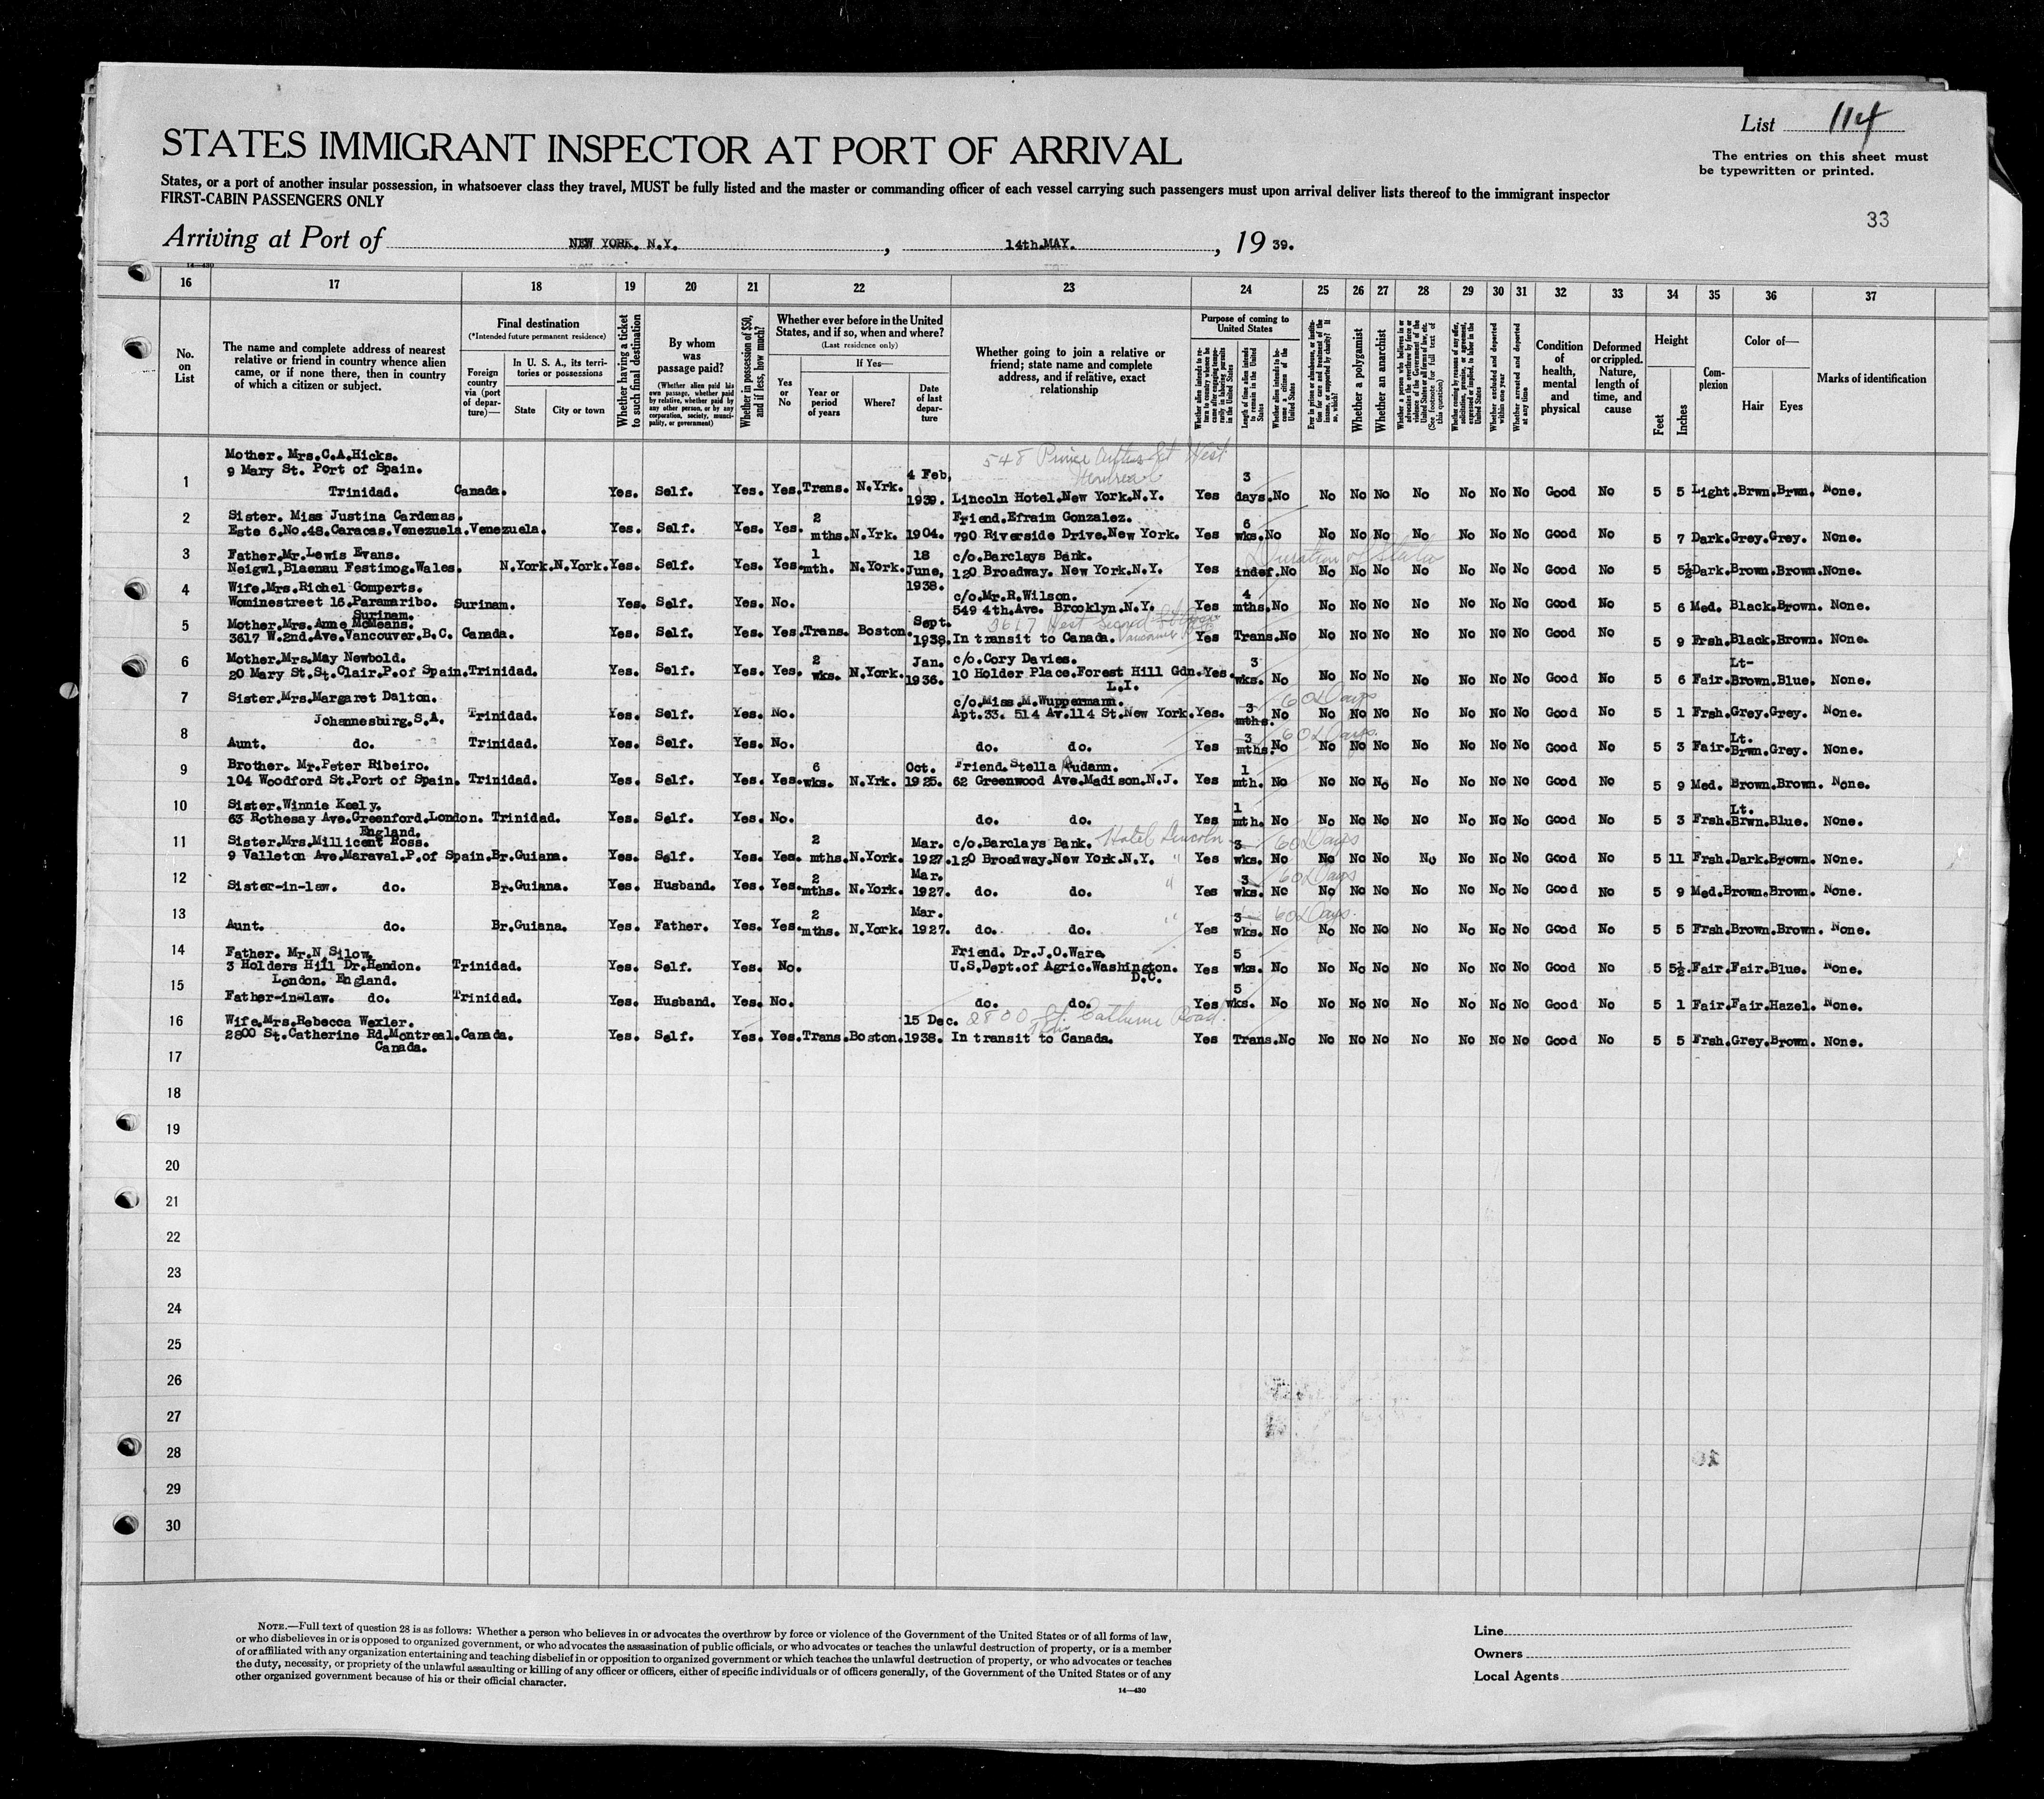 List 114
STATES IMMIGRANT INSPECTOR AT PORT OF ARRIVAL
The entries on this sheet must
be typewritten or printed.
States, or a port of another insular possession, in whatsoever class they travel, MUST be fully listed and the master or commanding officer of each vessel carrying such passengers must upon arrival deliver lists thereof to the immigrant inspector
FIRST-CABIN PASSENGERS ONLY
33
Arriving at Port of NEW YORK. N.Y. , 14th.MAY. , 19 39.
14—430
16 17 18 19 20 21 22 23 24 25 26 27 28 29 30 31 32 33 34 35 36 37
No. on List
The name and complete address of nearest relative or friend in country whence alien came, or if none there, then in country of which a citizen or subject.
Final destination
(*Intended future permanent residence)
Foreign country via (port of departure)—
In U. S. A., its territories or possessions
State
City or town
Whether having a ticket to such final destination
By whom was passage paid?
(Whether alien paid his own passage, whether paid by relative, whether paid by any other person, or by any corporation, society, municipality, or government)
Whether in possession of $50, and if less, how much?
Whether ever before in the United States, and if so, when and where?
(Last residence only)
Yes or No
If Yes—
Year or period of years
Where?
Date of last departure
Whether going to join a relative or friend; state name and complete address, and if relative, exact relationship
Purpose of coming to United States
Whether alien intends to return to country whence he came after engaging temporarily in laboring pursuits in the United States
Length of time alien intends to remain in the United States
Whether alien intends to become a citizen of the United States
Ever in prison or almshouse, or institution for care and treatment of the insane, or supported by charity? If so, which?
Whether a polygamist
Whether an anarchist
Whether a person who believes in or advocates the overthrow by force or violence of the Government of the United States or all forms of law, etc. (See footnote for full text of this question)
Whether coming by reason of any offer, solicitation, promise, or agreement, expressed or implied, to labor in the United States
Whether excluded and deported within one year
Whether arrested and deported at any time
Condition of health, mental and physical
Deformed or crippled. Nature, length of time, and cause
Height
Feet
Inches
Complexion
Color of—
Hair
Eyes
Marks of identification
548 Prince Arthur St West
Montreal
1 Mother. Mrs.C.A.Hicks. 9 Mary St. Port of Spain. Trinidad. Canada. Yes. Self. Yes. Yes. Trans. N.Yrk. 4 Feb, 1939. Lincoln Hotel.New York.N.Y. Yes 3 days. No No No No No No No No Good No 5 5 Light. Brwn. Brwn. None.
2 Sister. Miss Justina Cardenas. Este 6.No.48.Caracas.Venezuela. Venezuela. Yes. Self. Yes. Yes. 2 mths. N.Yrk. 1904. Friend.Efraim Gonzalez. 790 Riverside Drive.New York. Yes 6 wks. No No No No No No No No Good No 5 7 Dark. Grey. Grey. None.
3 Father.Mr.Lewis Evans. Neigwl,Blaenau Festimog.Wales. N.York. N.York. Yes. Self. Yes. Yes. 1 mth. N.York. 18 June, 1938. c/o.Barclays Bank. 120 Broadway. New York.N.Y. Yes indef. Duration of Status No No No No No No No No Good No 5 5½ Dark. Brown. Brown. None.
4 Wife.Mrs.Richel Gomperts. Wominestreet 16.Paramaribo. Surinam. Surinam. Yes. Self. Yes. No. c/o.Mr.R.Wilson. 549 4th.Ave. Brooklyn.N.Y. Yes 4 mths. No No No No No No No No Good No 5 6 Med. Black. Brown. None.
5 Mother.Mrs.Anne McMeans. 3617 W.2nd.Ave.Vancouver.B.C. Canada. Yes. Self. Yes. Yes. Trans. Boston. Sept. 1938. 3617 West Second Vancouver In transit to Canada. Yes Trans. No No No No No No No No Good No 5 9 Frsh. Black. Brown. None.
6 Mother.Mrs.May Newbold. 20 Mary St.St.Clair.P.of Spain. Trinidad. Yes. Self. Yes. Yes. 2 wks. N.York. Jan. 1936. c/o.Cory Davies. 10 Holder Place.Forest Hill Gdn. L.I. Yes. 3 wks. No No No No No No No No Good No 5 6 Fair. Lt-Brown. Blue. None.
7 Sister.Mrs.Margaret Dalton. Johannesburg.S.A. Trinidad. Yes. Self. Yes. No. c/o.Miss.M.Wuppermann. Apt.33. 514 Av.114 St.New York. Yes. 3 mths. 60 Days No No No No No No No No Good No 5 1 Frsh. Grey. Grey. None.
8 Aunt. do. Trinidad. Yes. Self. Yes. No. do. do. Yes 3 mths. 60 Days. No No No No No No No No Good No 5 3 Fair. Lt. Brwn. Grey. None.
9 Brother. Mr.Peter Ribeiro. 104 Woodford St.Port of Spain. Trinidad. Yes. Self. Yes. Yes. 6 wks. N.Yrk. Oct. 1925. Friend.Stella 62 Greenwood Ave.Madison.N.J. Yes 1 mth. No No No No No No No No Good No 5 9 Med. Brown. Brown. None.
10 Sister.Winnie Keely. 63 Rothesay Ave.Greenford.London. England. Trinidad. Yes. Self. Yes. No. do. do. Yes 1 mth. No No No No No No No No Good No 5 3 Frsh. Lt. Brwn. Blue. None.
11 Sister.Mrs.Millicent Ross. 9 Valleton Ave.Maraval.P.of Spain. Br.Guiana. Yes. Self. Yes. Yes. 2 mths. N.York. Mar. 1927. c/o.Barclays Bank. Hotel Lincoln 120 Broadway.New York.N.Y. " Yes 3 wks. 60 Days No No No No No No No No Good No 5 11 Frsh. Dark. Brown. None.
12 Sister-in-law. do. Br.Guiana. Yes. Husband. Yes. Yes. 2 mths. N.York. Mar. 1927. do. do. " Yes 3 wks. 60 Days No No No No No No No No Good No 5 9 Med. Brown. Brown. None.
13 Aunt. do. Br.Guiana. Yes. Father. Yes. Yes. 2 mths. N.York. Mar. 1927. do. do. " Yes 3 wks. 60 Days. No No No No No No No No Good No 5 5 Frsh. Brown. Brown. None.
14 Father. Mr.N.Silow. 3 Holders Hill Dr.Hendon. London. England. Trinidad. Yes. Self. Yes. No. Friend. Dr.J.O.Ware. U.S.Dept.of Agric.Washington. D.C. Yes 5 wks. No No No No No No No No Good No 5 5½. Fair. Fair. Blue. None.
15 Father-in-law. do. Trinidad. Yes. Husband. Yes. No. do. do. Yes 5 wks. No No No No No No No No Good No 5 1 Fair. Fair. Hazel. None.
16 Wife.Mrs.Rebecca Wexler. 2800 St.Catherine Rd.Montreal. Canada. Canada. Yes. Self. Yes. Yes. Trans. Boston. 15 Dec. 1938. 2800 St. Catherine Road. In transit to Canada. Yes Trans. No No No No No No No No Good No 5 5 Frsh. Grey. Brown. None.
17
18
19
20
21
22
23
24
25
26
27
28
29
30
NOTE.—Full text of question 28 is as follows: Whether a person who believes in or advocates the overthrow by force or violence of the Government of the United States or of all forms of law,
or who disbelieves in or is opposed to organized government, or who advocates the assassination of public officials, or who advocates or teaches the unlawful destruction of property, or is a member
of or affiliated with any organization entertaining and teaching disbelief in or opposition to organized government or which teaches the unlawful destruction of property, or who advocates or teaches
the duty, necessity, or propriety of the unlawful assaulting or killing of any officer or officers, either of specific individuals or of officers generally, of the Government of the United States or of any
other organized government because of his or their official character.
14—430
Line
Owners
Local Agents